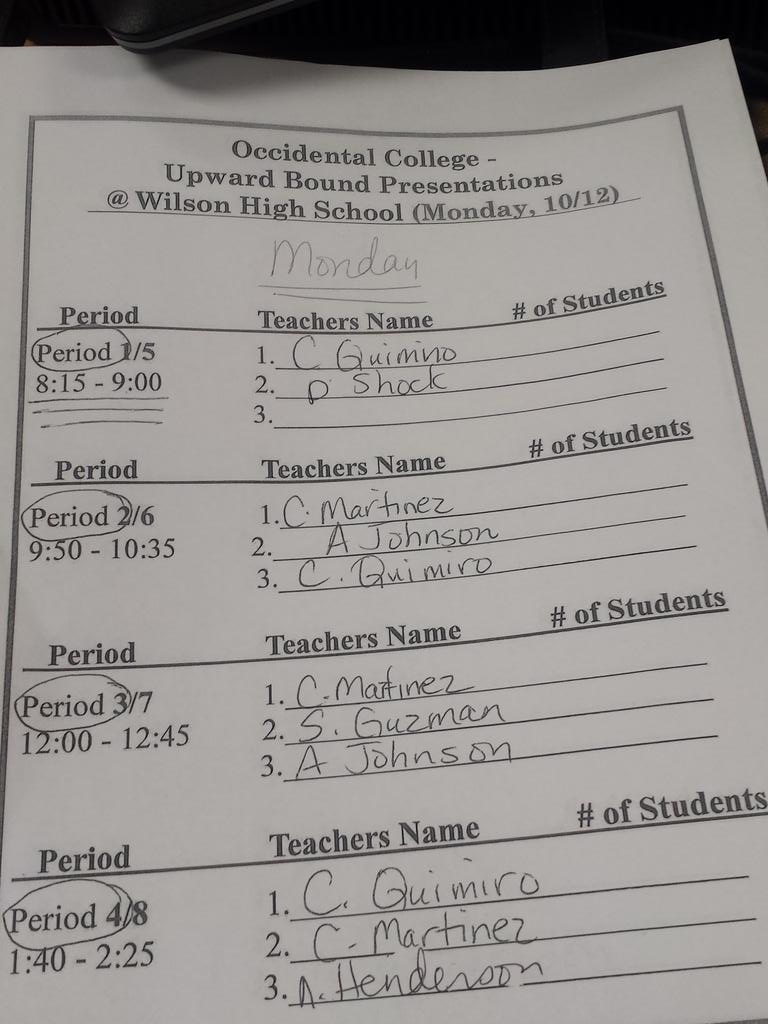 Occidental College -
Upward Bound Presentations
@ Wilson High School (Monday, 10/12)
Monday
Period Teachers Name # of Students
Period 1/5 1. C Quimiro
8:15 - 9:00 2. D Shock
3.
Period Teachers Name # of Students
Period 2/6 1. C. Martinez
9:50 - 10:35 2. A Johnson
3. C. Quimiro
Period Teachers Name # of Students
Period 3/7 1. C. Martinez
12:00 - 12:45 2. S. Guzman
3. A Johnson
Period Teachers Name # of Students
Period 4/8 1. C. Quimiro
1:40 - 2:25 2. C. Martinez
3. A. Henderson